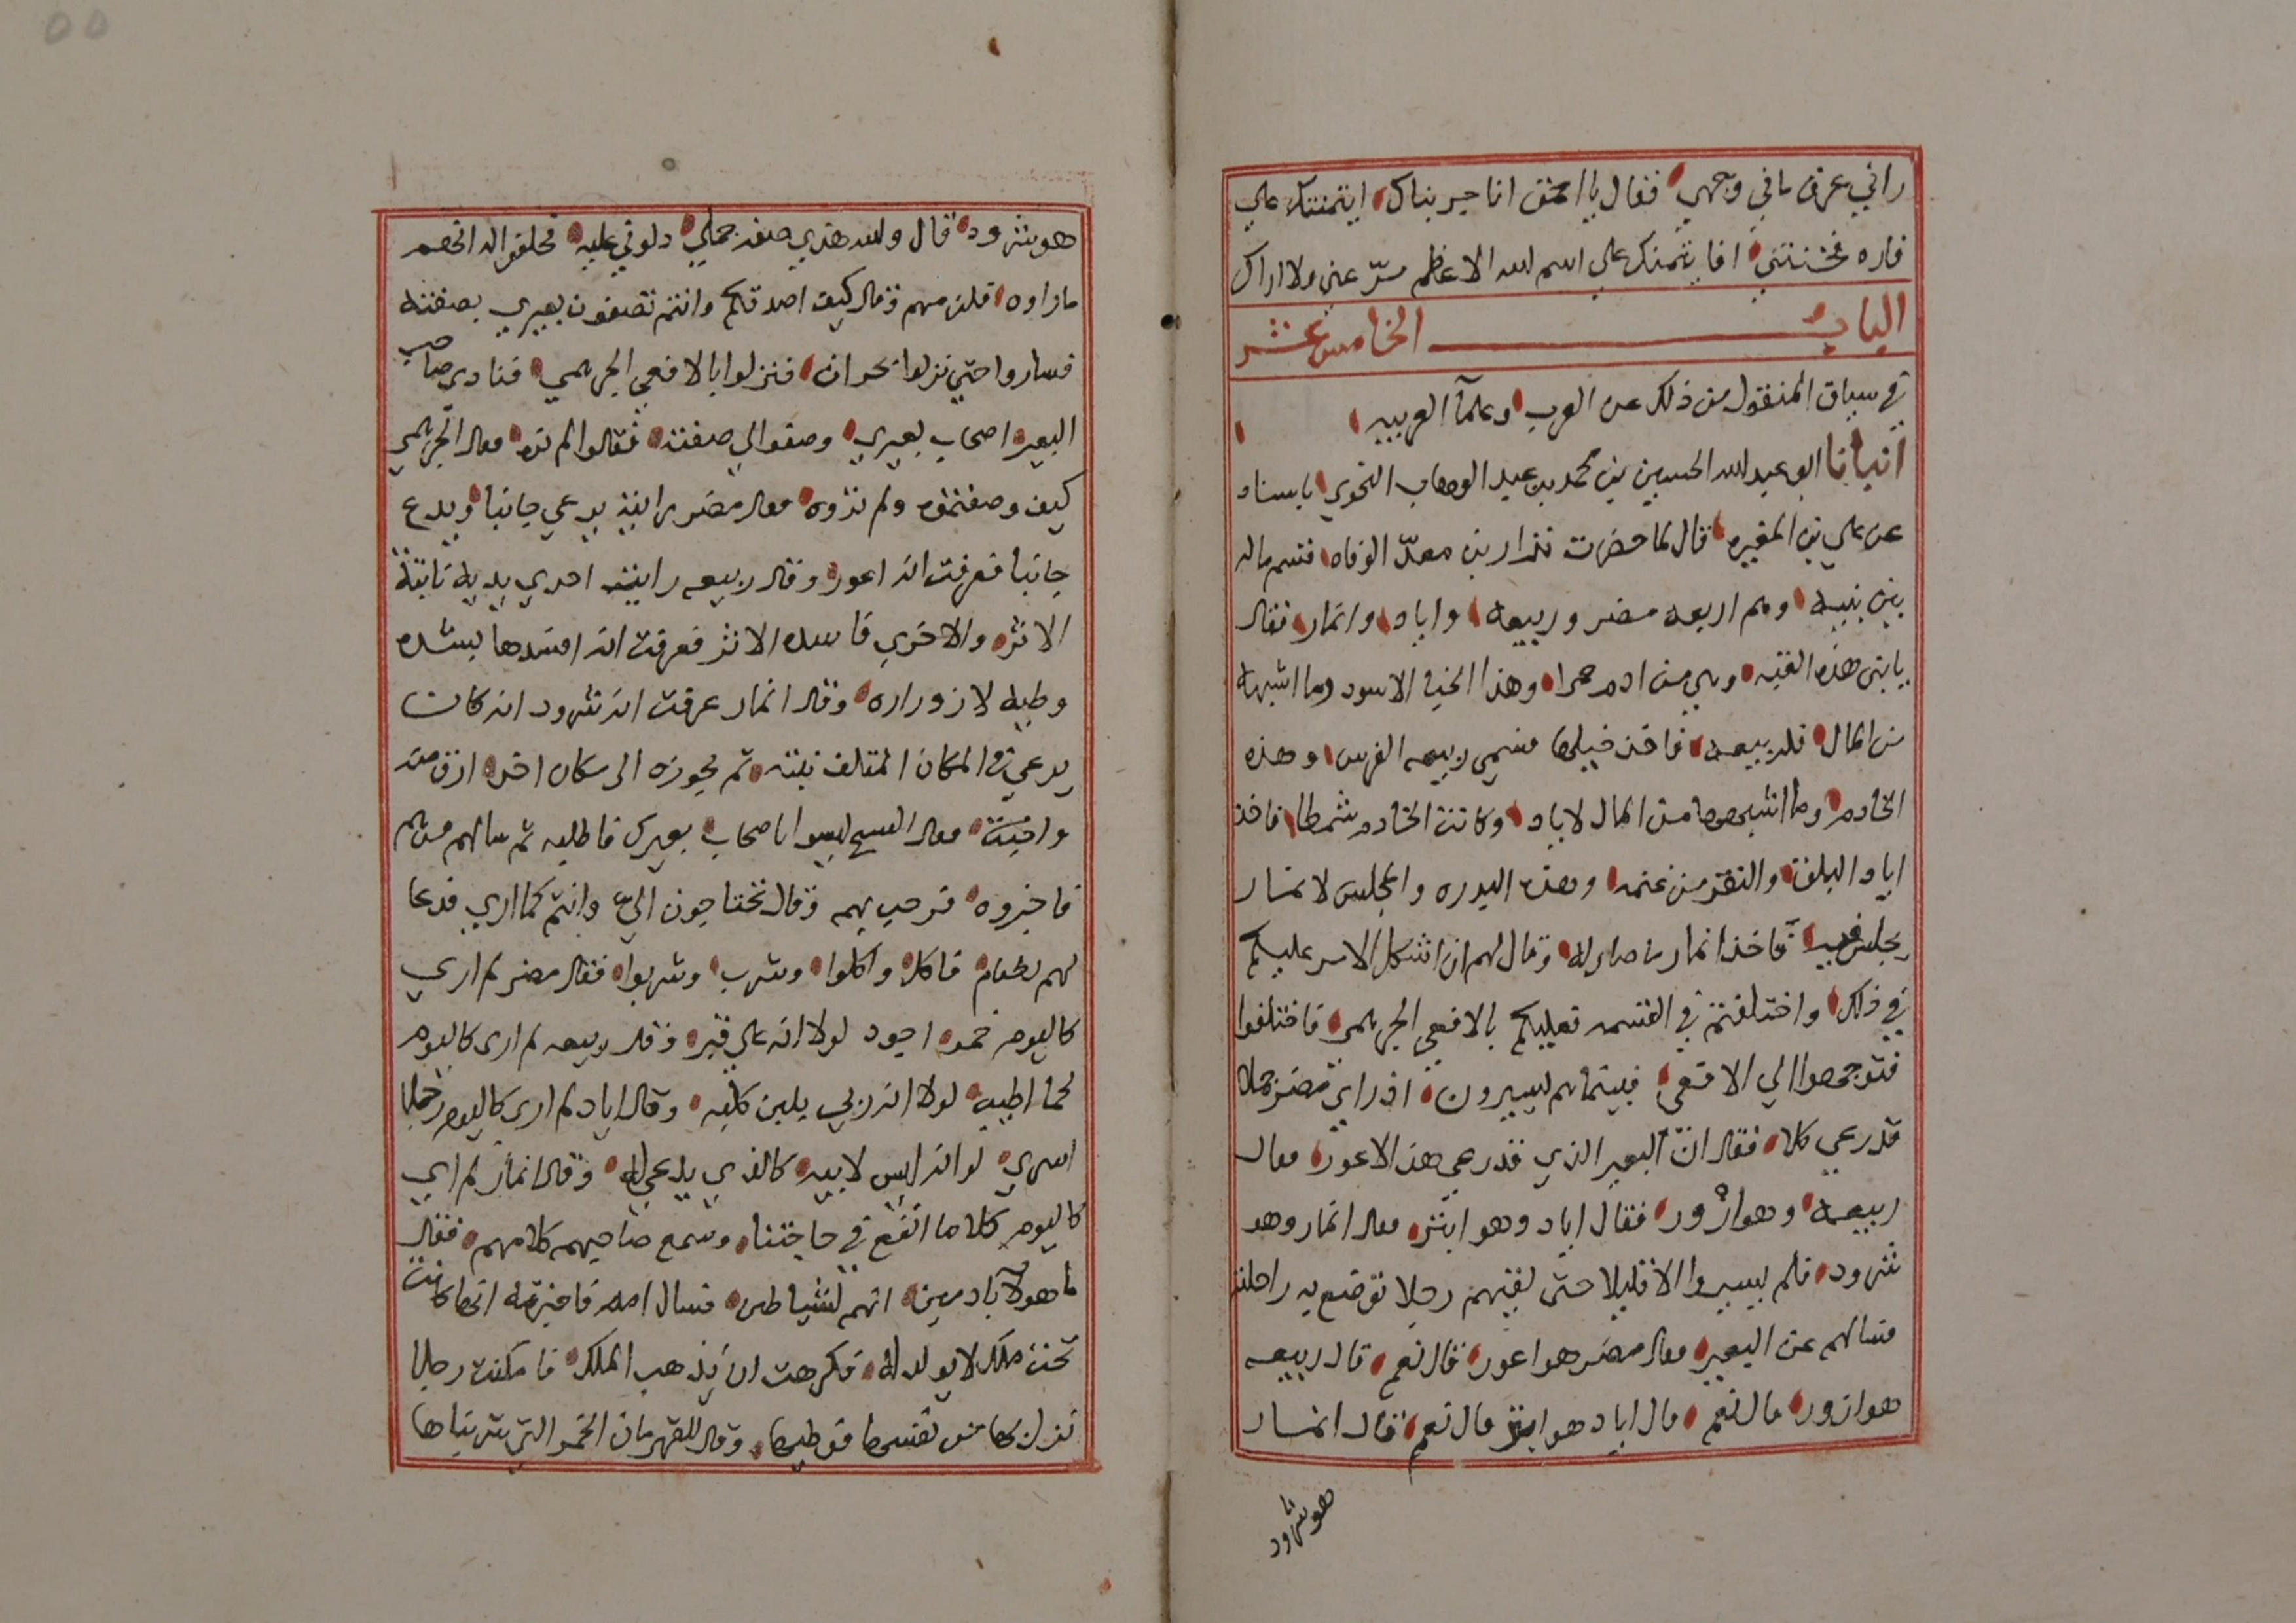 راني عرف ما في وجهي فقال يا احمق انا جربناك ايتمنتك علي
فاره فخنتني افايتمنك علي اسم الله الاعظم مرّ عني ولا اراك
الباب الخامس عشر
في سياق المنقول من ذلك عن العرب وعلمآ العربيه
انبانا ابو عبد الله الحسين بن محمد بن عبد الوهاب النحوي باسناد
عن علي بن المغيره قال لما حضرت نزار بن معدّ الوفاه قسم ماله
بين بنيه وهم اربعه مضر وربيعه واياد وانمار فقال
يابني هذه القبه وهي من ادم حمرا وهذا الخبا الاسود وما اشبهه
من المال فلربيعه فاخذ خيلها فسمي ربيعه الفرس وهذه
الخادم وما اشبهها من المال لاياد وكانت الخادم شمطا فاخذ
اياد البلق والنقد من غنمه وهذه البدره والمجلس لانمار
يجلس فيه فاخذ انمار ما صار له وقال لهم ان اشكل الامر عليكم
في ذلك واختلفتم في القسمه فعليكم بالافعي الجرهمي فاختلفوا
فتوجهوا الي الافعي فبينما هم يسيرون اذ راي مضر كلا
قد رعي كلا فقال انّ البعير الذي قد رعي هذا لاعور فقال
ربيعه وهو ازور فقال اياد وهو ابتر فقال انمار وهو
شرود فلم يسيروا الا قليلا حتى لقيهم رجلا توضع به راحلته
فسالهم عن البعير فقال مضر هو اعور قال نعم قال ربيعه
هو ازور قال نعم قال اياد هو ابتر قال نعم قال انمار
هو شرود
هو شرود قال والله هذي صفه جملي دلوني عليه فحلفوا له انهم
ما راوه فلزمهم وقال كيف اصدقكم وانتم تصفون بعيري بصفته
فساروا حتي نزلوا نجران فنزلوا بالافعي الجرهمي فنادى صاحب
البعير اصحاب بعيري وصفوا لي صفته فقالوا لم نره فقال الجرهمي
كيف وصفتموه ولم تروه فقال مضر رايته يرعي جانبا ويدع
جانبا فعرفت انه اعور وقال ربيعه رايت احدي يديه ثابتة
الاثر والاخري فاسده الاثر فعرفت انه افسدها بشده
وطيه لازوراره وقال انمار عرفت انه شرود انه كان
يرعي في المكان الملتف نبته ثم يجوزه الى مكان اخر ارق منه
واخبث فقال الشيخ ليسوا اصحاب بعيرك فاطلبه ثم سالهم من هم
فاخبروه فرحب بهم وقال تحتاجون اليّ وانتم كما اري فدعا
لهم بطعام فاكل واكلوا وشرب وشربوا فقال مضر لم اري
كاليوم خمرا اجود لولا انه علي قبر وقال ربيعه لم ارى كاليوم
لحما اطيب لولا انه ربي بلبن كلبه وقال اياد لم ارى كاليوم رجلا
اسري لو انه ليس لابيه كالذي يدعي له وقال انمار لم اري
كاليوم كلاما انفع في حاجتنا وسمع صاحبهم كلامهم فقال
ما هولآ بادميين انهم لشياطين فسال امه فاخبرته انها كانت
تحت ملك لا يولد له فكرهت ان يذهب الملك فامكنت رجلا
نزل بها من نفسها فوطيها وقال للقهرمان الخمر التي شربناها